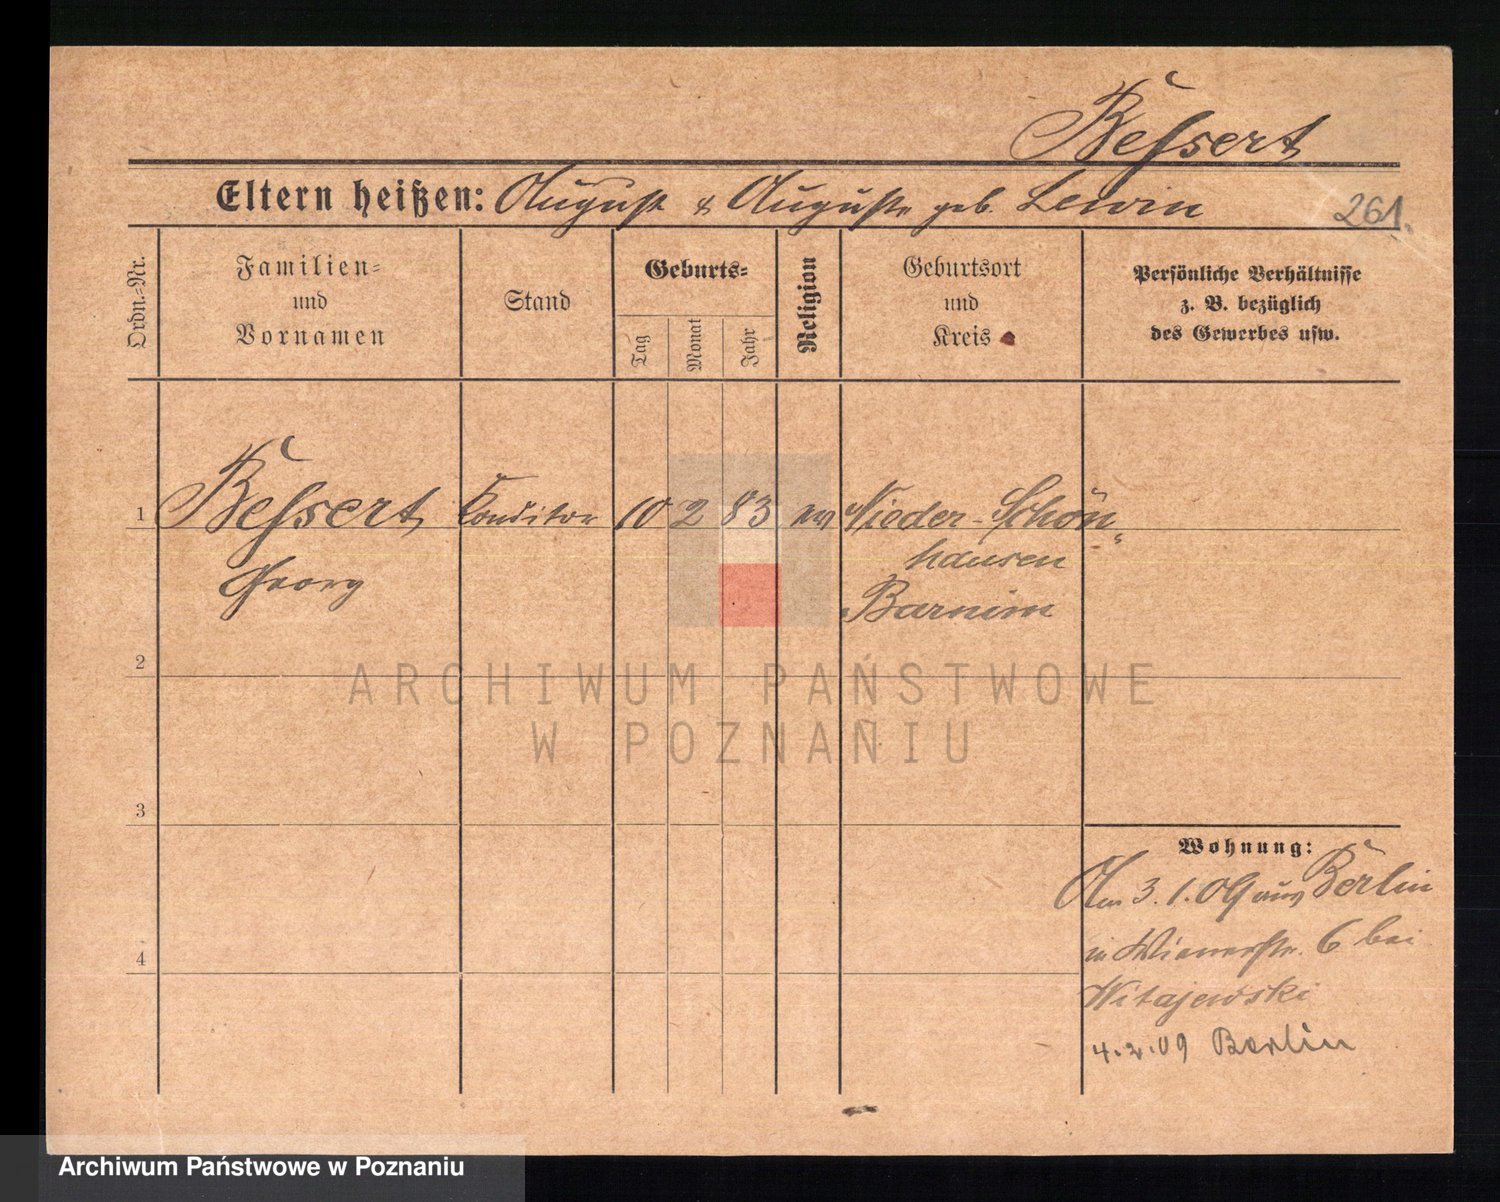 Beſsert
Eltern heißen: August & Auguste geb. Lewin
261.
Ordn.-Nr.
Familien-
und
Vornamen
Stand
Geburts-
Tag
Monat
Jahr
Religion
Geburtsort
und
Kreis
Persönliche Verhältnisse
z. B. bezüglich
des Gewerbes usw.
1 Beſsert Conditor 10 2 83 ev Nieder-Schön-
hausen
Georg
Barnim
2
3
4
Wohnung:
Am 3.1.09 aus Berlin
in Wienerstr. 6 bei
Witajewski
4.2.09 Berlin
ARCHIWUM PAŃSTWOWE
W POZNANIU
Archiwum Państwowe w Poznaniu